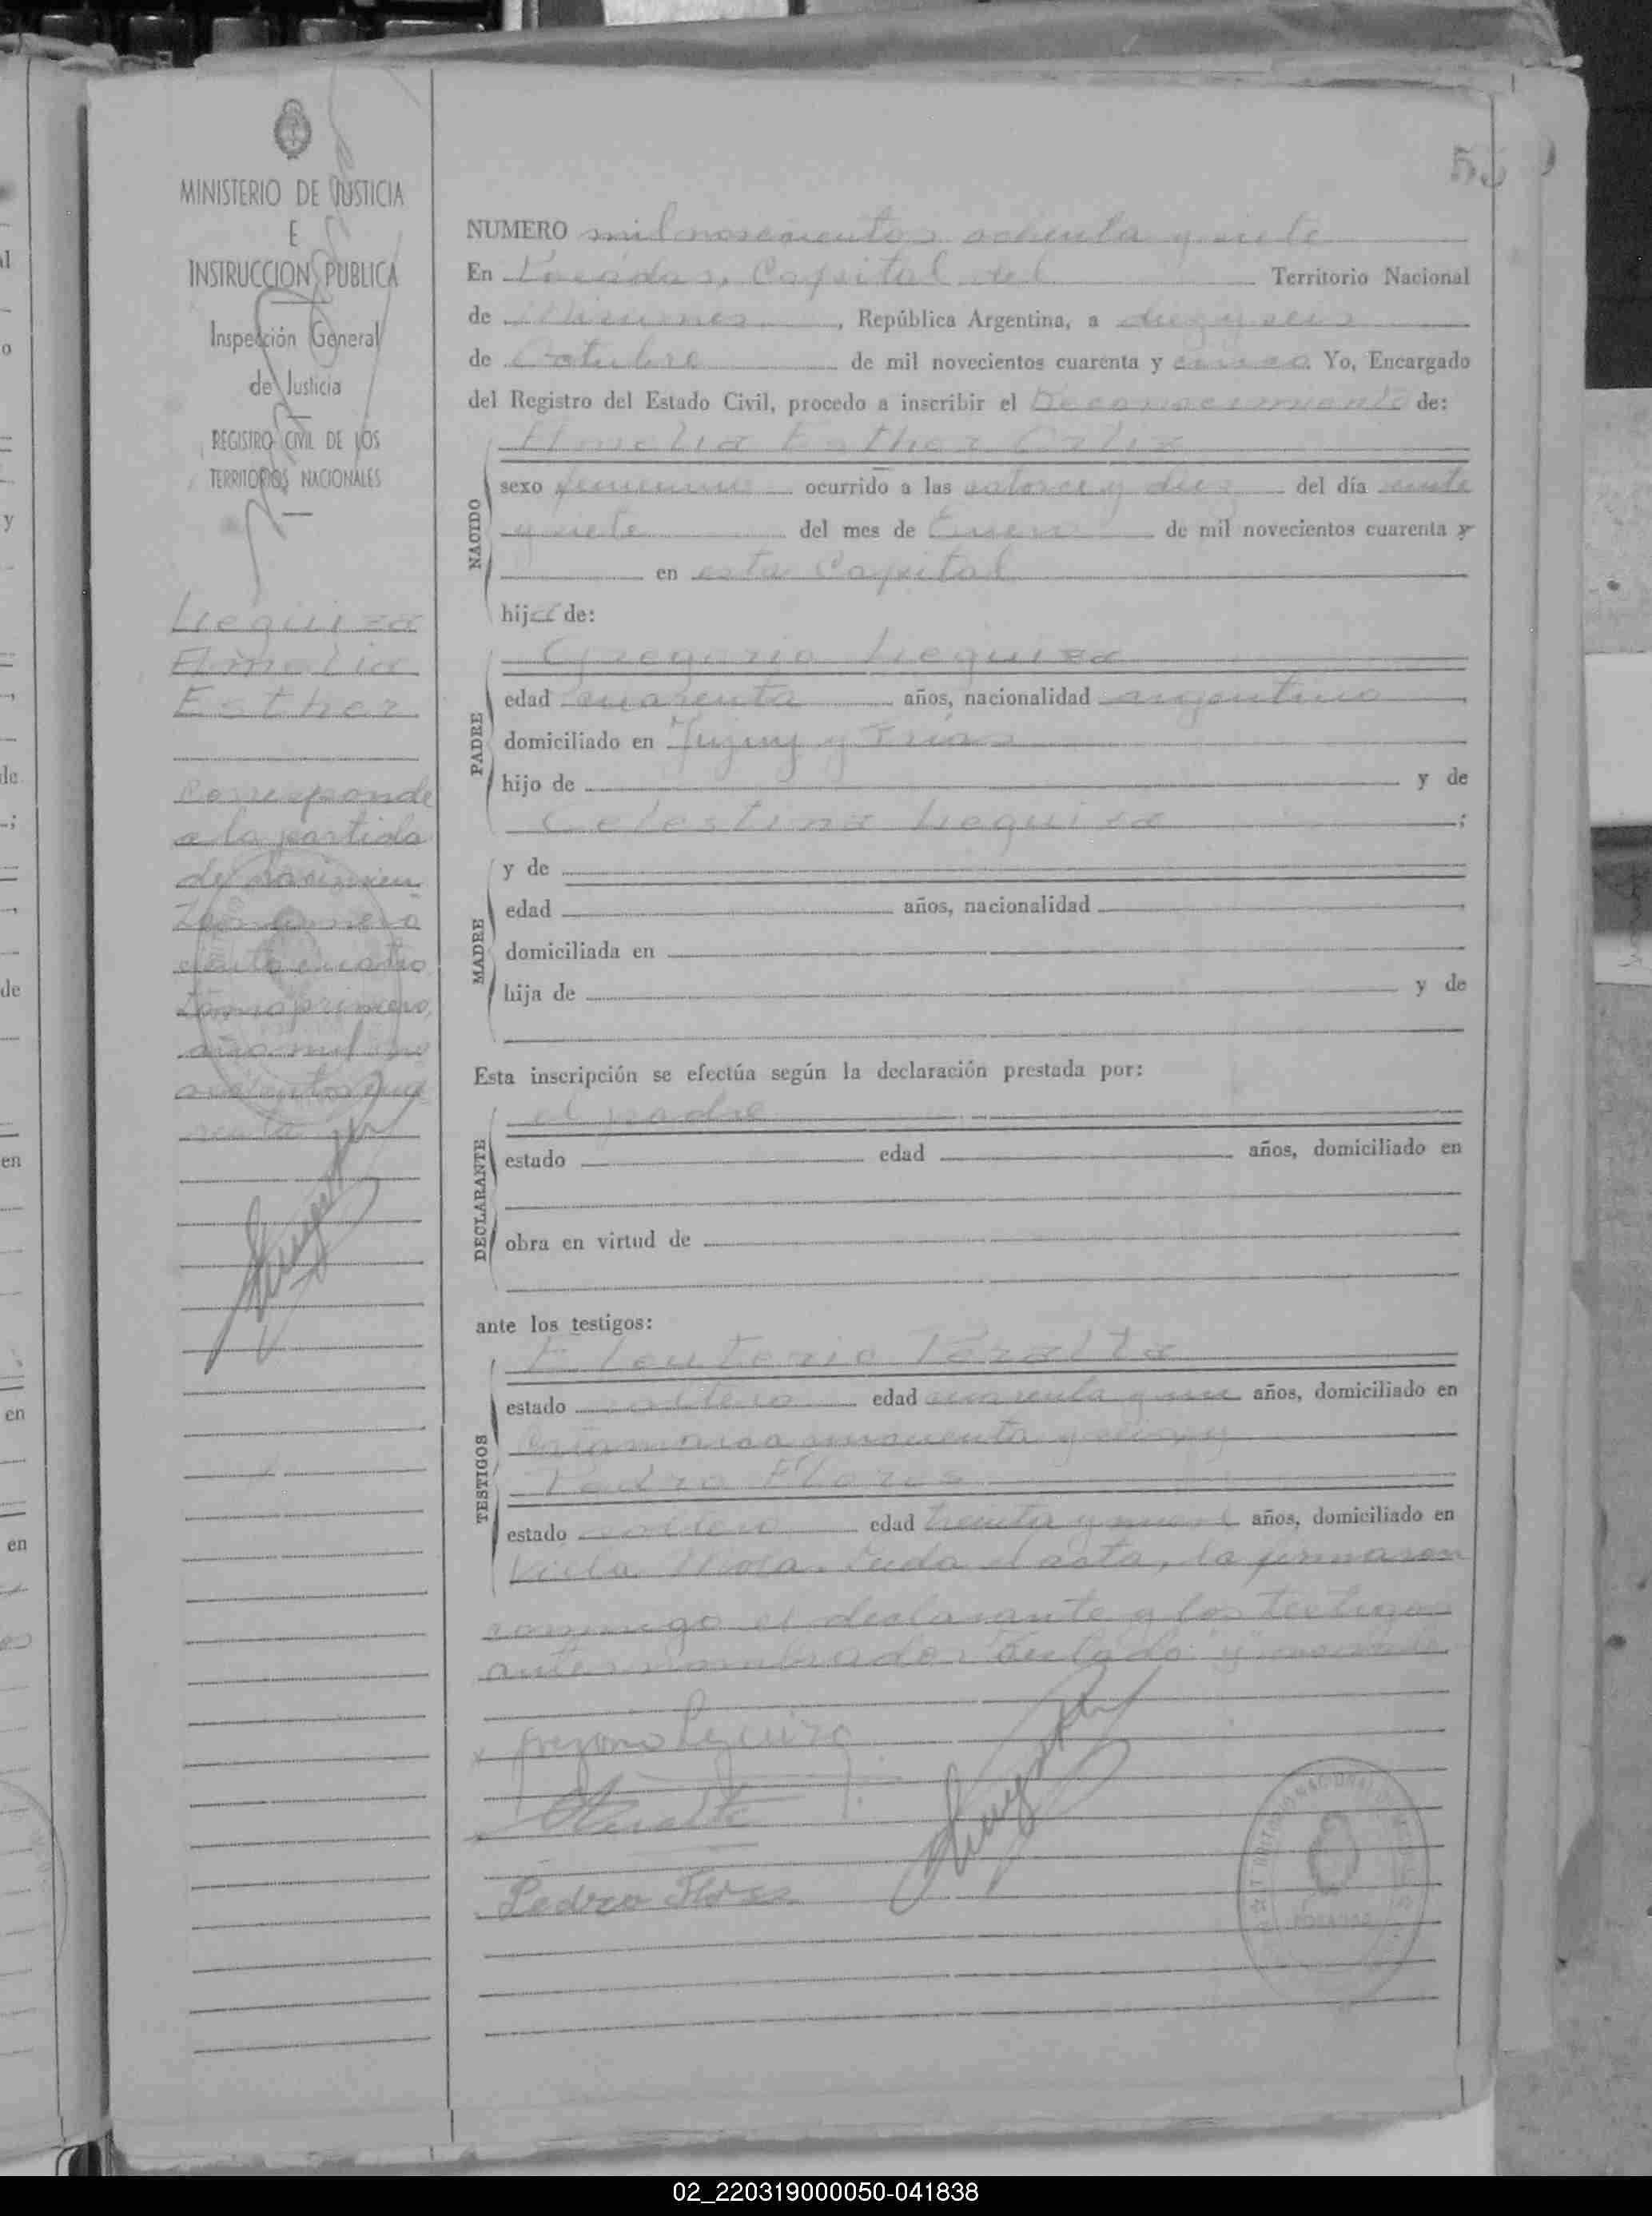 MINISTERIO DE JUSTICIA
E
INSTRUCCION PUBLICA
Inspección General
de Justicia
REGISTRO CIVIL DE LOS
TERRITORIOS NACIONALES
Leguiza
Amelia
Esther
Corresponde
a la partida
de nacimien
to número
ciento cuatro
tomo primero,
año mil no
vecientos cua
renta
NUMERO mil novecientos ochenta y siete
En Posadas, Capital del Territorio Nacional
de Misiones, República Argentina, a diez y seis
de Octubre de mil novecientos cuarenta y cinco. Yo, Encargado
del Registro del Estado Civil, procedo a inscribir el Reconocimiento de:
Amelia Esther
NACIDO
sexo femenino ocurrido a las catorce y diez del día veinte
y siete del mes de Enero de mil novecientos cuarenta y
en esta Capital
hija de:
PADRE
Gregorio Leguiza
edad cuarenta años, nacionalidad argentino
domiciliado en Jujuy y Frías
hijo de y de
Celestina Leguiza;
MADRE
y de
edad años, nacionalidad
domiciliada en
hija de y de
Esta inscripción se efectúa según la declaración prestada por:
DECLARANTE
el padre
estado edad años, domiciliado en
obra en virtud de
ante los testigos:
TESTIGOS
Eleuterio Peralta
estado soltero edad cuarenta y un años, domiciliado en
Catamarca cincuenta y
Pedro Flores
estado soltero edad treinta y nueve años, domiciliado en
Villa Leída el acta, la firmaron
conmigo el declarante y los testigos
antes nombrados. Testado "y" no vale
Gregorio Leguiza
Peralta
Pedro Flores
POSADAS
02_220319000050-041838